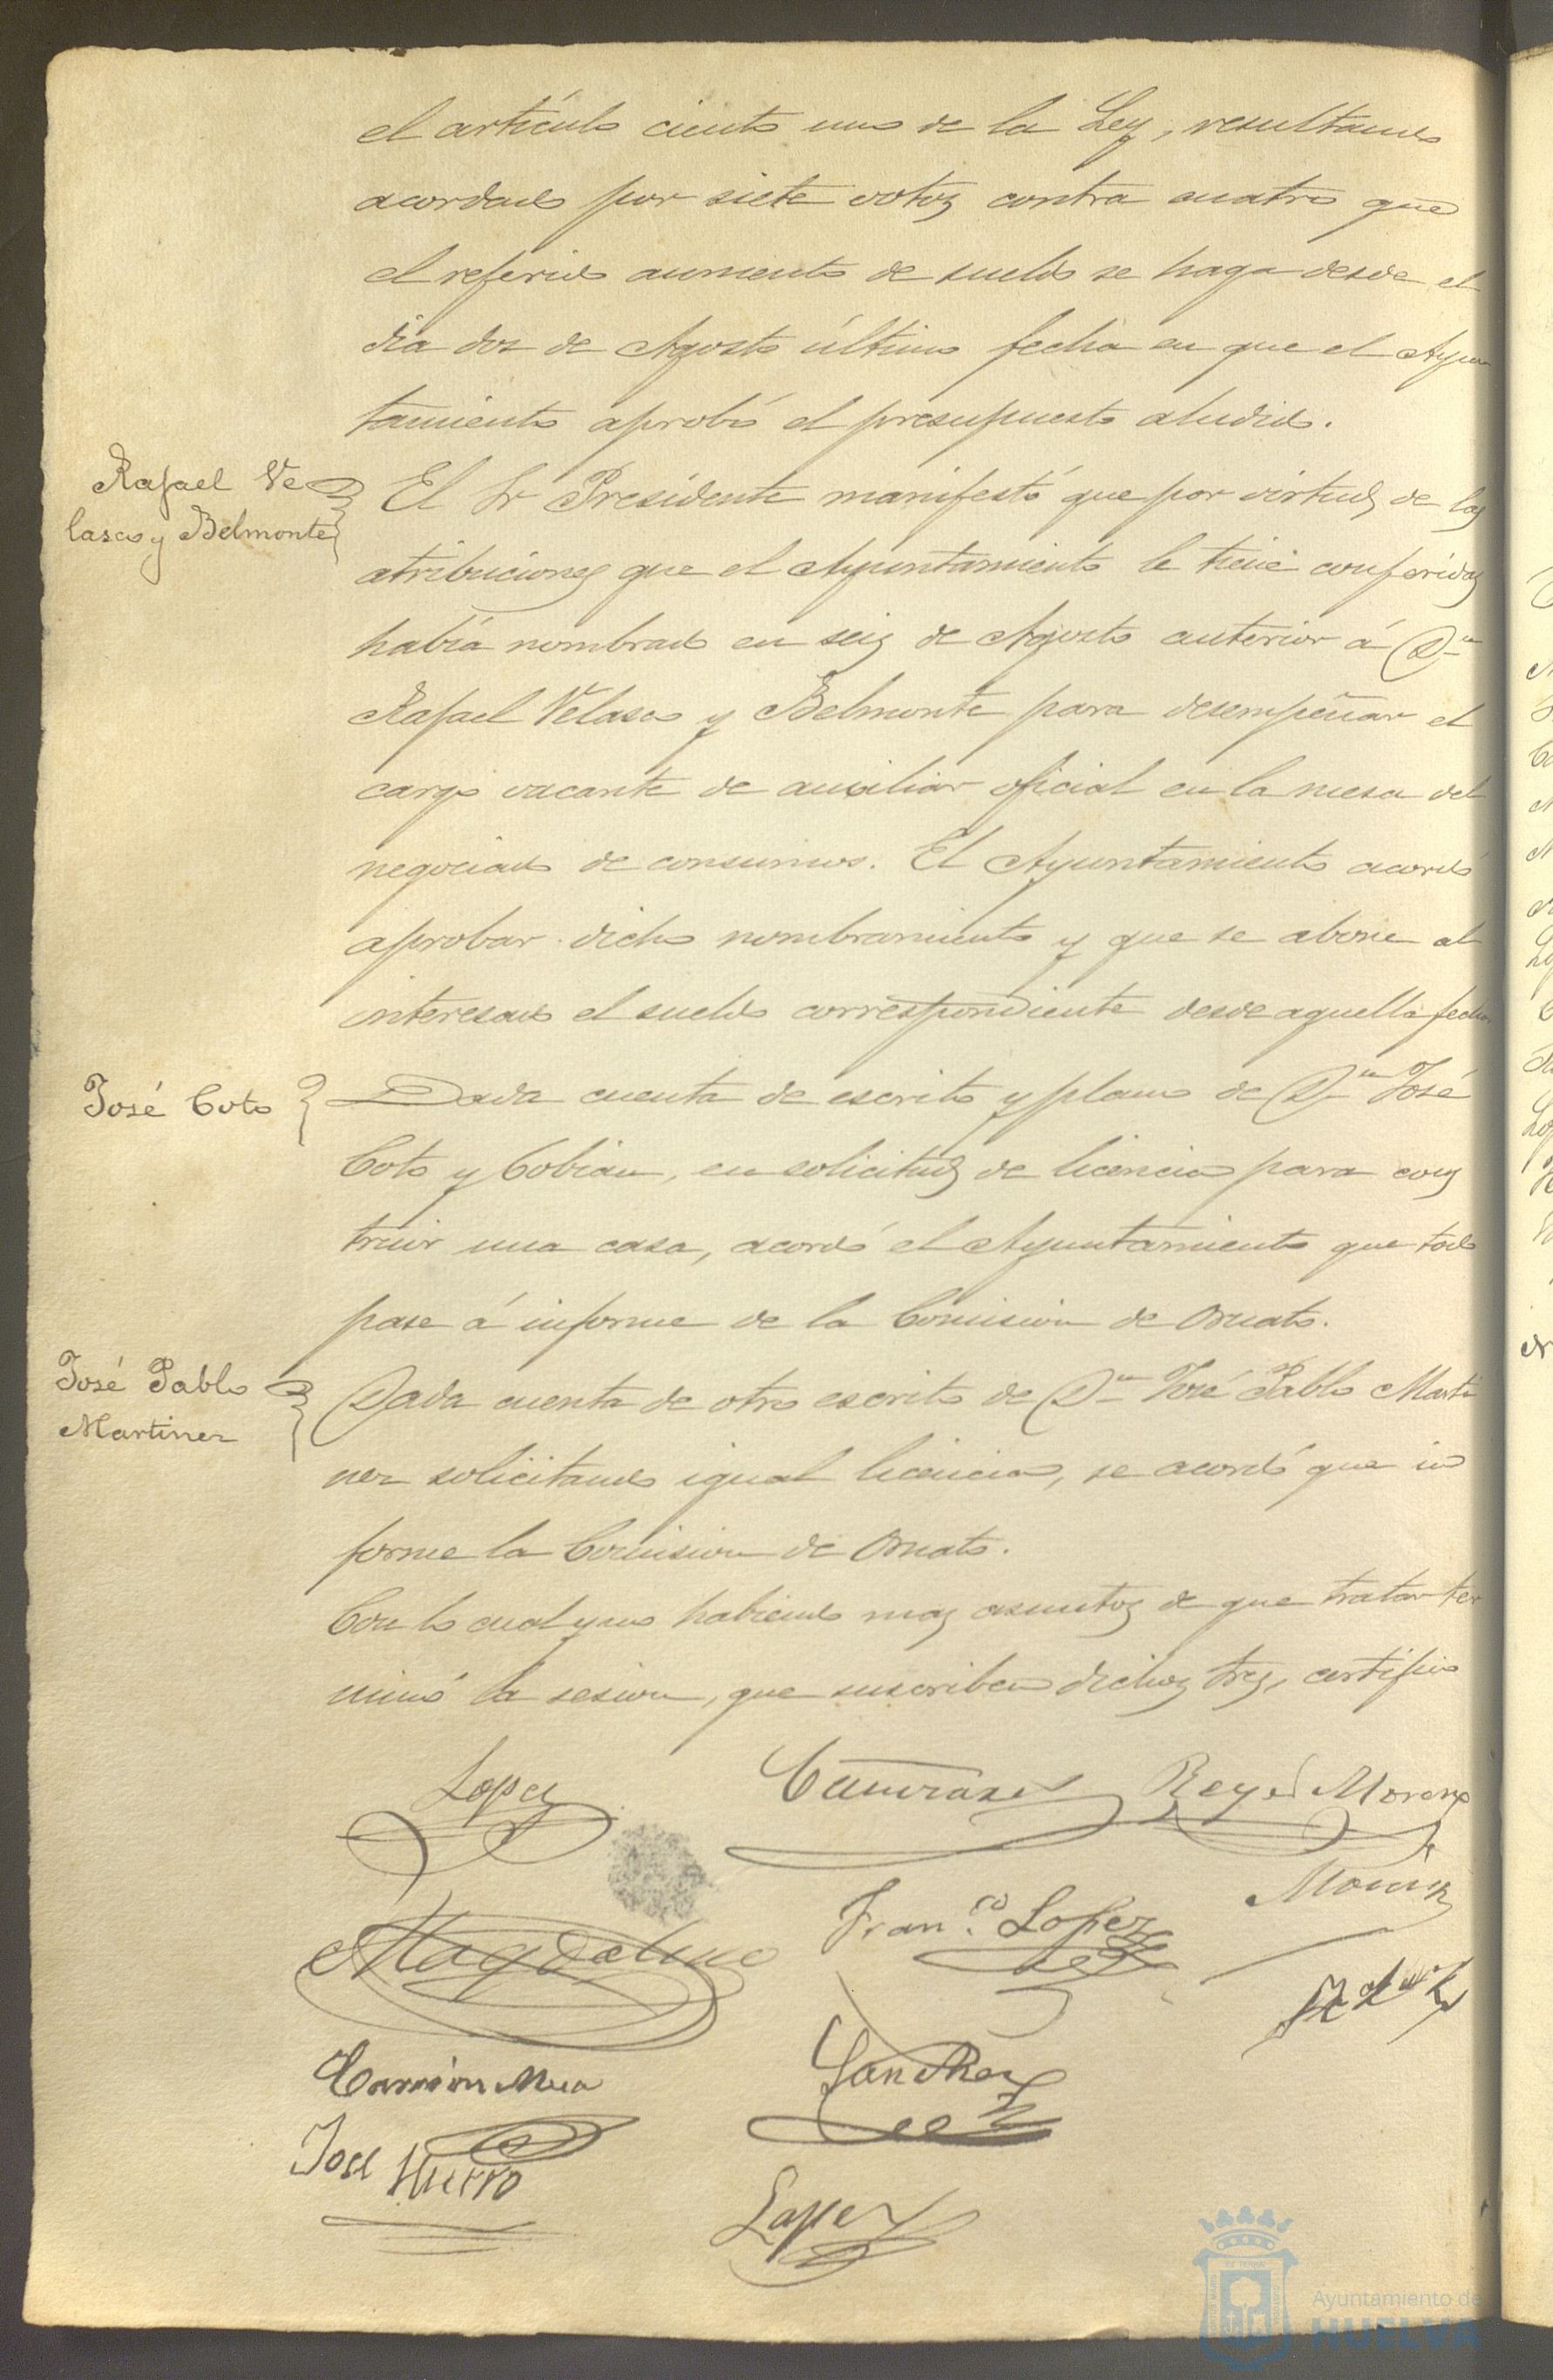 el artículo ciento uno de la Ley, resultando
acordado por siete votos contra cuatro que
el referido aumento de sueldo se haga desde el
dia dos de Agosto último fecha en que el Ayun
tamiento aprobó el presupuesto aludido.
Rafael Ve
lasco y Belmonte
El Sr Presidente manifestó que por virtud de las
atribuciones que el Ayuntamiento le tiene conferidas
había nombrado en seis de Agosto anterior á Dn
Rafael Velasco y Belmonte para desempeñar el
cargo vacante de auxiliar oficial en la mesa del
negociado de consumos. El Ayuntamiento acordó
aprobar dicho nombramiento y que se abone al
interesado el sueldo correspondiente desde aquella fecha
José Coto
Dada cuenta de escrito y plano de Dn José
Coto y Cobian, en solicitud de licencia para cons
truir una casa, acordó el Ayuntamiento que todo
pase á informe de la Comision de Ornato.
José Pablo
Martinez
Dada cuenta de otro escrito de Dn José Pablo Marti
nez solicitando igual licencia, se acordó que in
forme la Comision de Ornato.
Con lo cual y no habiendo mas asuntos de que tratar ter
minó la sesion, que suscriben dichos Sres, certifico
Lopez
Reyes Moreno
Fran.co Lopez
Sanchez
José
Lopez
Ayuntamiento de
HUELVA